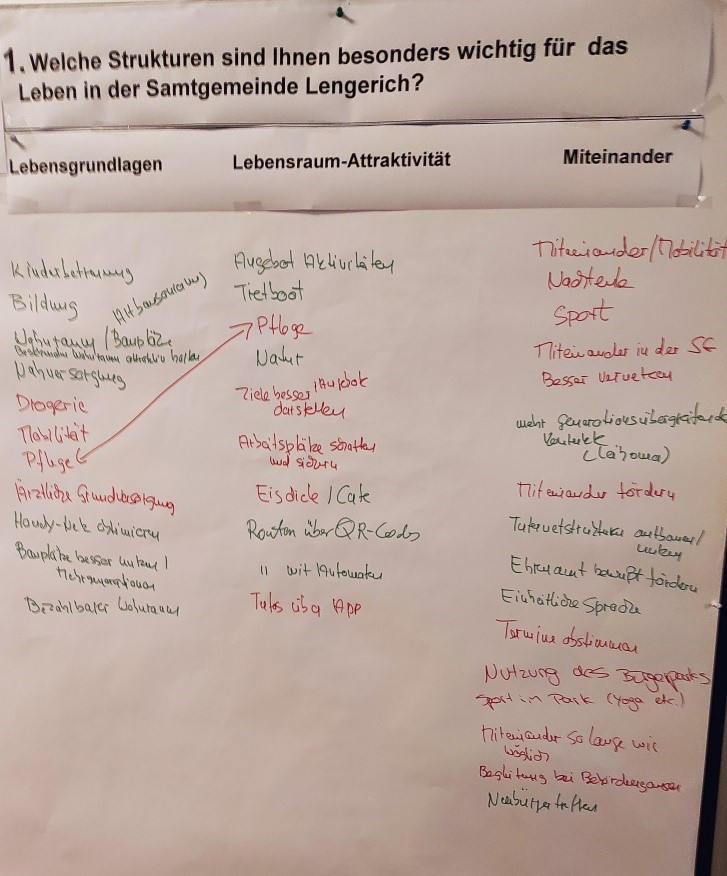 1. Welche Strukturen sind Ihnen besonders wichtig für das
Leben in der Samtgemeinde Lengerich?
Lebensgrundlagen
Kinderbetreuung
Bildung
(Altbausanierung)
Wohnraum / Bauplätze
Bestehenden Wohnraum attraktiv halten
Nahversorgung
Drogerie
Mobilität
Pflege
Ärztliche Grundversorgung
Handy-Netz optimieren
Bauplätze besser nutzen /
Mehrgenerationen
Bezahlbarer Wohnraum
Lebensraum-Attraktivität
Angebot Aktivitäten
Tretboot
Pflege
Natur
Ziele besser
darstellen
Arbeitsplätze schaffen
und sichern
Eisdiele / Cafe
Routen über QR-Codes
" mit Automaten
Infos über App
Miteinander
Miteinander / Mobilität
Sport
Miteinander in der SG
Besser vernetzen
mehr generationsübergreifende
Miteinander fördern
Internetstruktur aufbauen /
nutzen
Ehrenamt bewußt fördern
Einheitliche Sprache
Termine abstimmen
Nutzung des Bürgerparks
Sport im Park (Yoga etc.)
Miteinander so lange wie
möglich
Begleitung bei Behördengängen
Neubürgertreffen